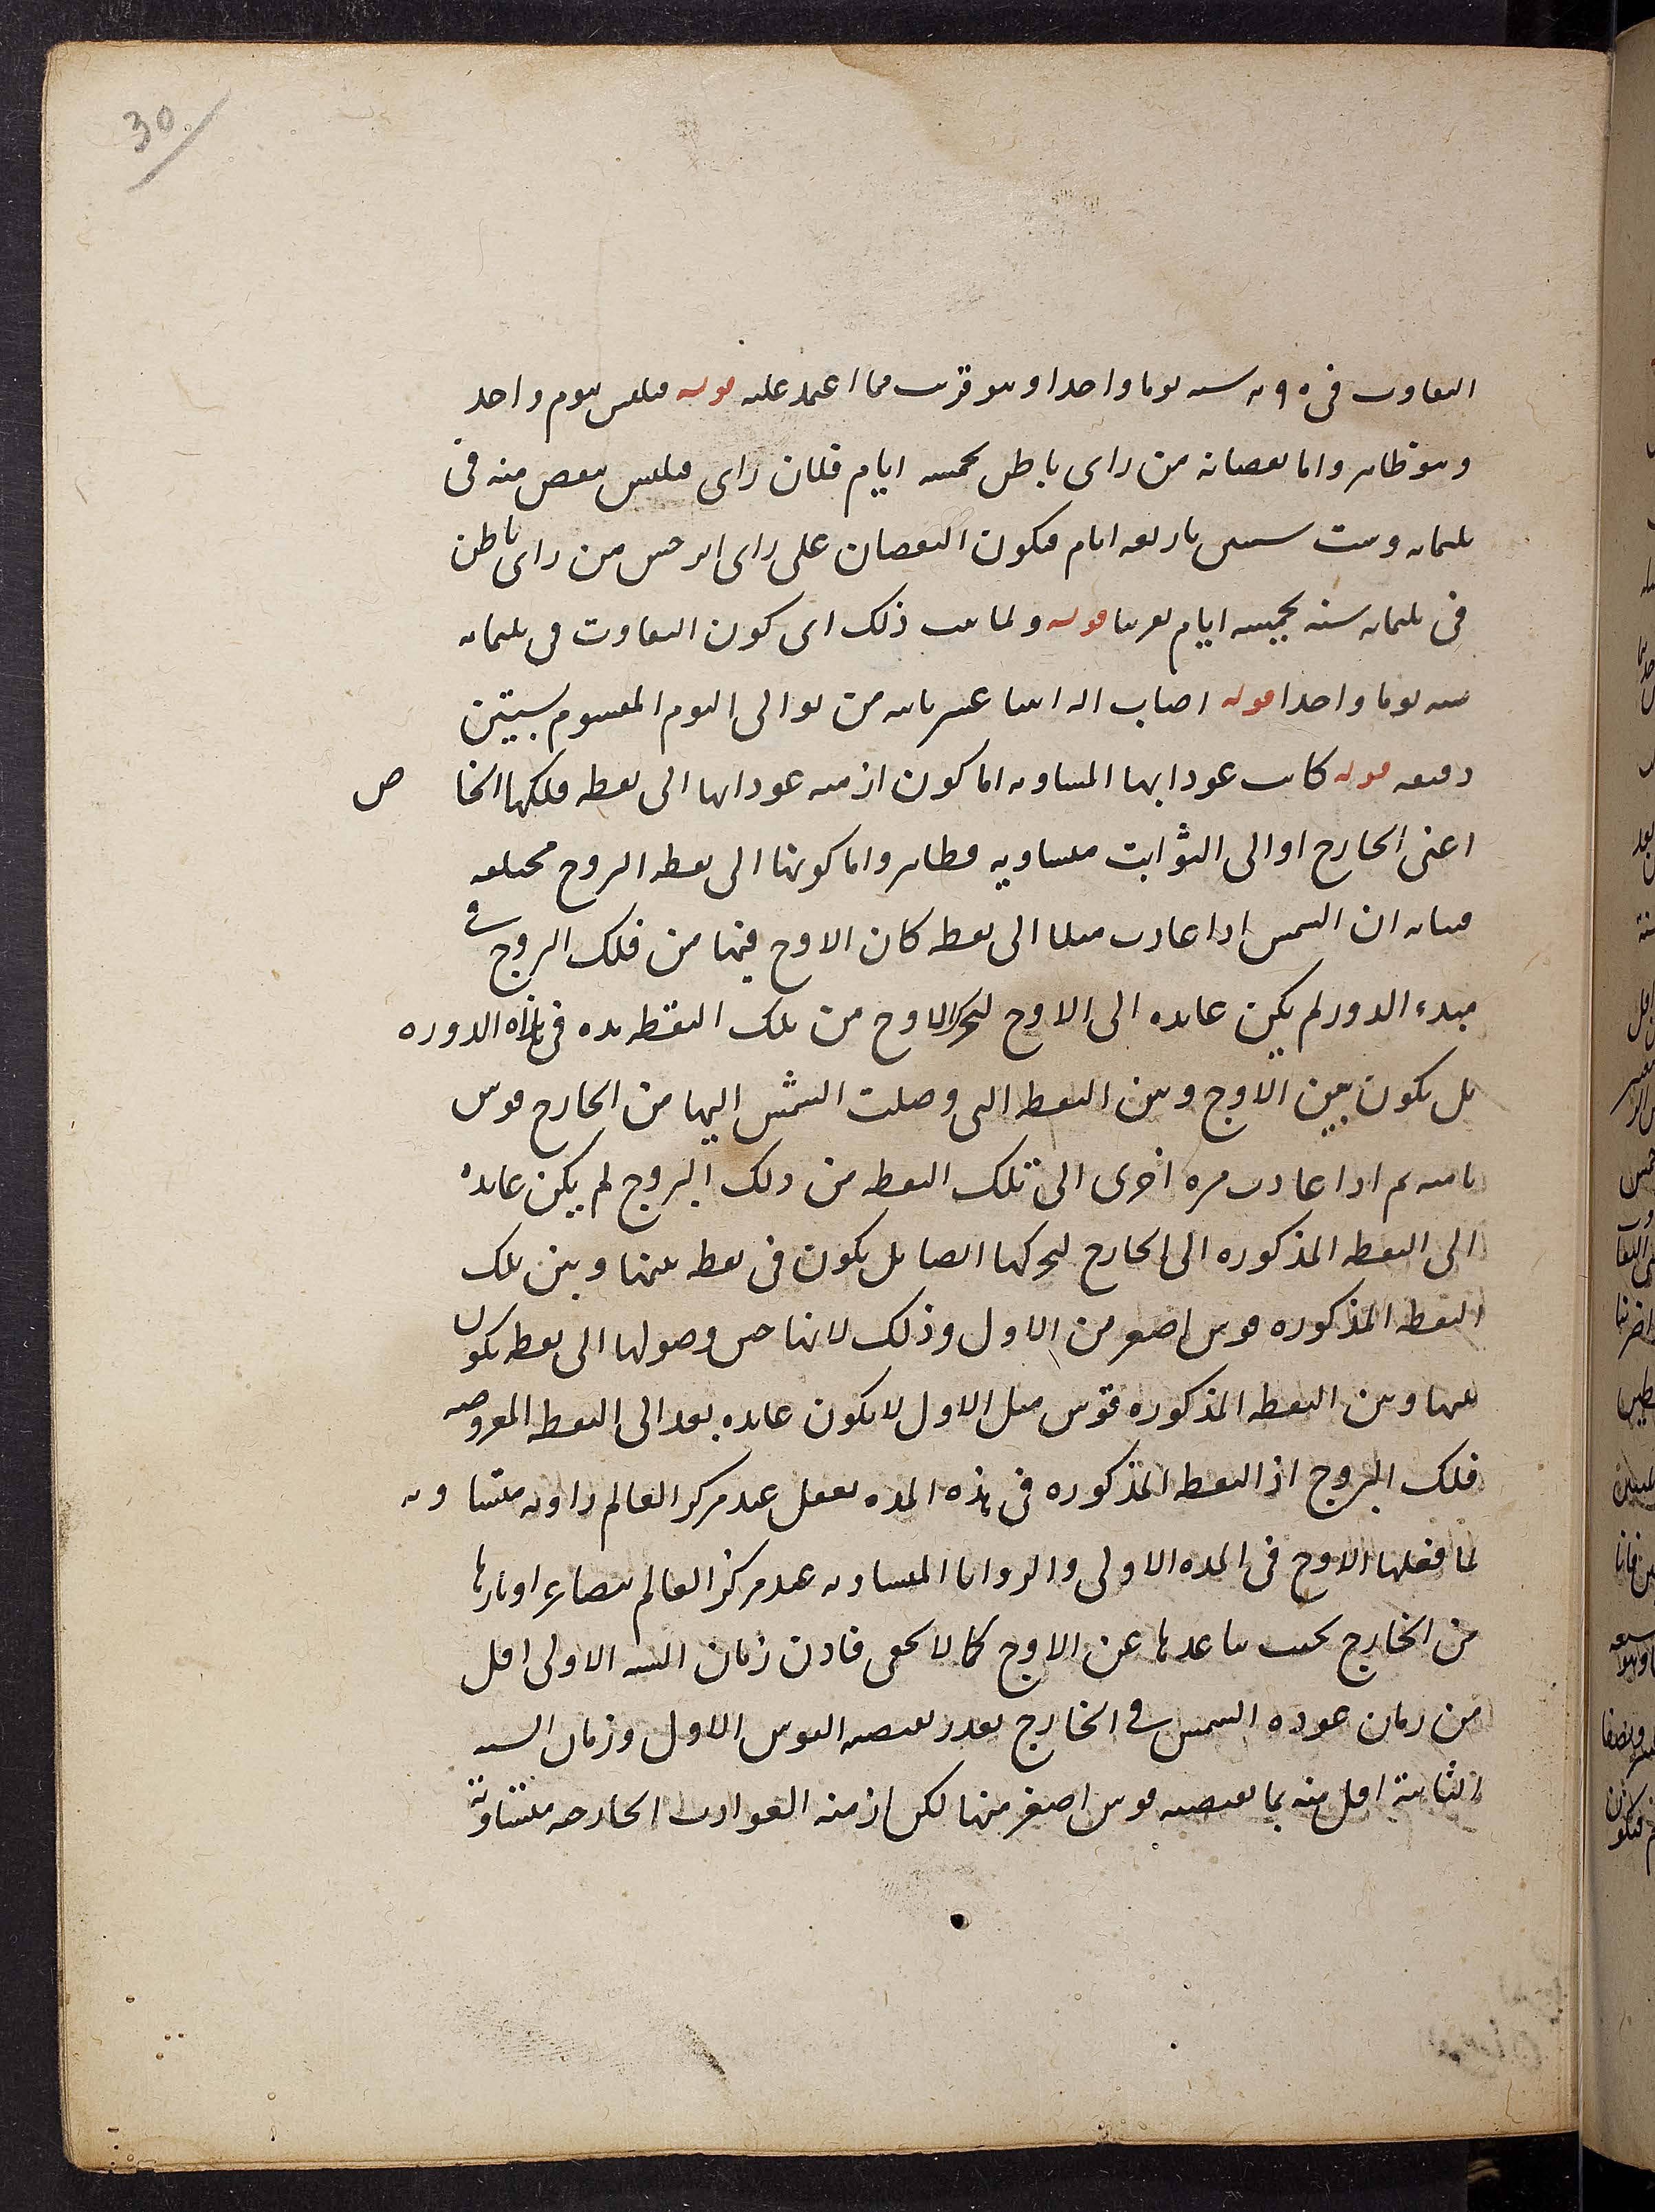 30
التفاوت في ٢٩٥ سنه يوما واحدا وهو قريب مما اعتمد عليه قوله فلنقص يوم واحد
وهو ظاهر واما نقصانه من راى باطن بخمسه ايام فلان راى فلنقص منه في
ثلثمايه وست سنين باربعه ايام فيكون النقصان على راى ابرخس من راى باطن
في ثلثمايه سنه بخمسه ايام تقريبا قوله ولما ثبت ذلك اى كون التفاوت في ثلثمايه
سنه يوما واحدا قوله اصاب اله اثنا عشر ثانيه من توالى اليوم المقسوم بستين
دقيقه قوله كانت عوداتها المتساويه اما كون ازمنه عوداتها الى نقطه فلكها الخا ص
اعنى الخارج او الى الثوابت متساويه فظاهر واما كونها الى نقطه البروج مختلفه
فبيانه ان الشمس اذا عادت مثلا الى نقطه كان الاوج فيها من فلك البروج في
مبدء الدور لم يكن عايده الى الاوج لتحرك الاوج من تلك النقطه في هذه الدوره
بل يكون بين الاوج وبين النقطه التى وصلت الشمس اليها من الخارج قوس
ثم اذا عادت مره اخرى الى تلك النقطه من فلك البروج لم يكن عايده
الى النقطه المذكوره الى الخارج لتحركها ايضا بل يكون في نقطه بينها وبين تلك
النقطه المذكوره قوس اصغر من الاول وذلك لانها حين وصولها الى نقطه يكون
بينها وبين النقطه المذكوره قوس مثل الاول لا يكون عايده بعد الى النقطه المفروضه
فلك البروج اذ النقطه المذكوره في هذه المده تفعل عند مركز العالم زاويه متساويه
لما فعلها الاوج في المده الاولى والزوايا المتساويه عند مركز العالم يتصاغر اوتارها
من الخارج بحسب تباعدها عن الاوج كما لا يخفى فاذن زمان السنه الاولى اقل
من زمان عوده الشمس في الخارج بقدر تقتضيه القوس الاول وزمان السنه
الثانية اقل منه بما تقتضيه قوس اصغر منها لكن ازمنه العودات الخارجه متساوية